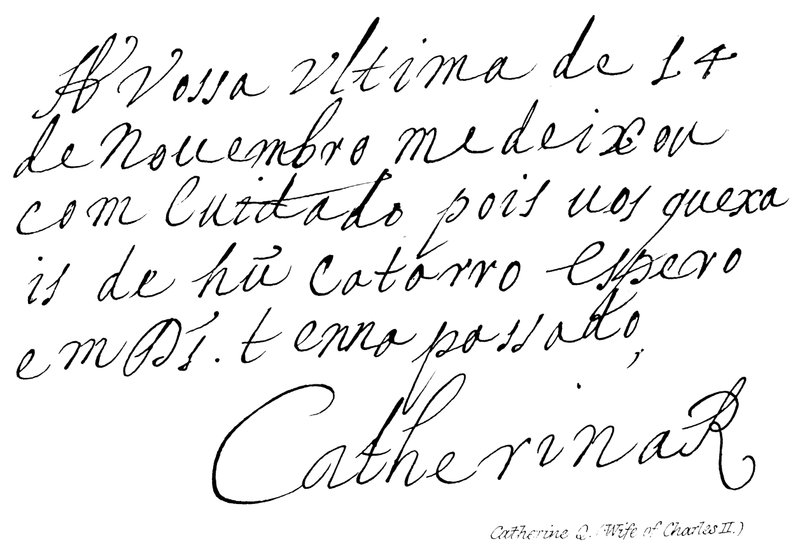 A Vossa Vltima de 14
de Nouembro me deixou
com Cuidado pois uos quexa
is de hũ catarro espero
em Ds. tenna passado,
Catherina R
Catherine Q. (Wife of Charles II.)